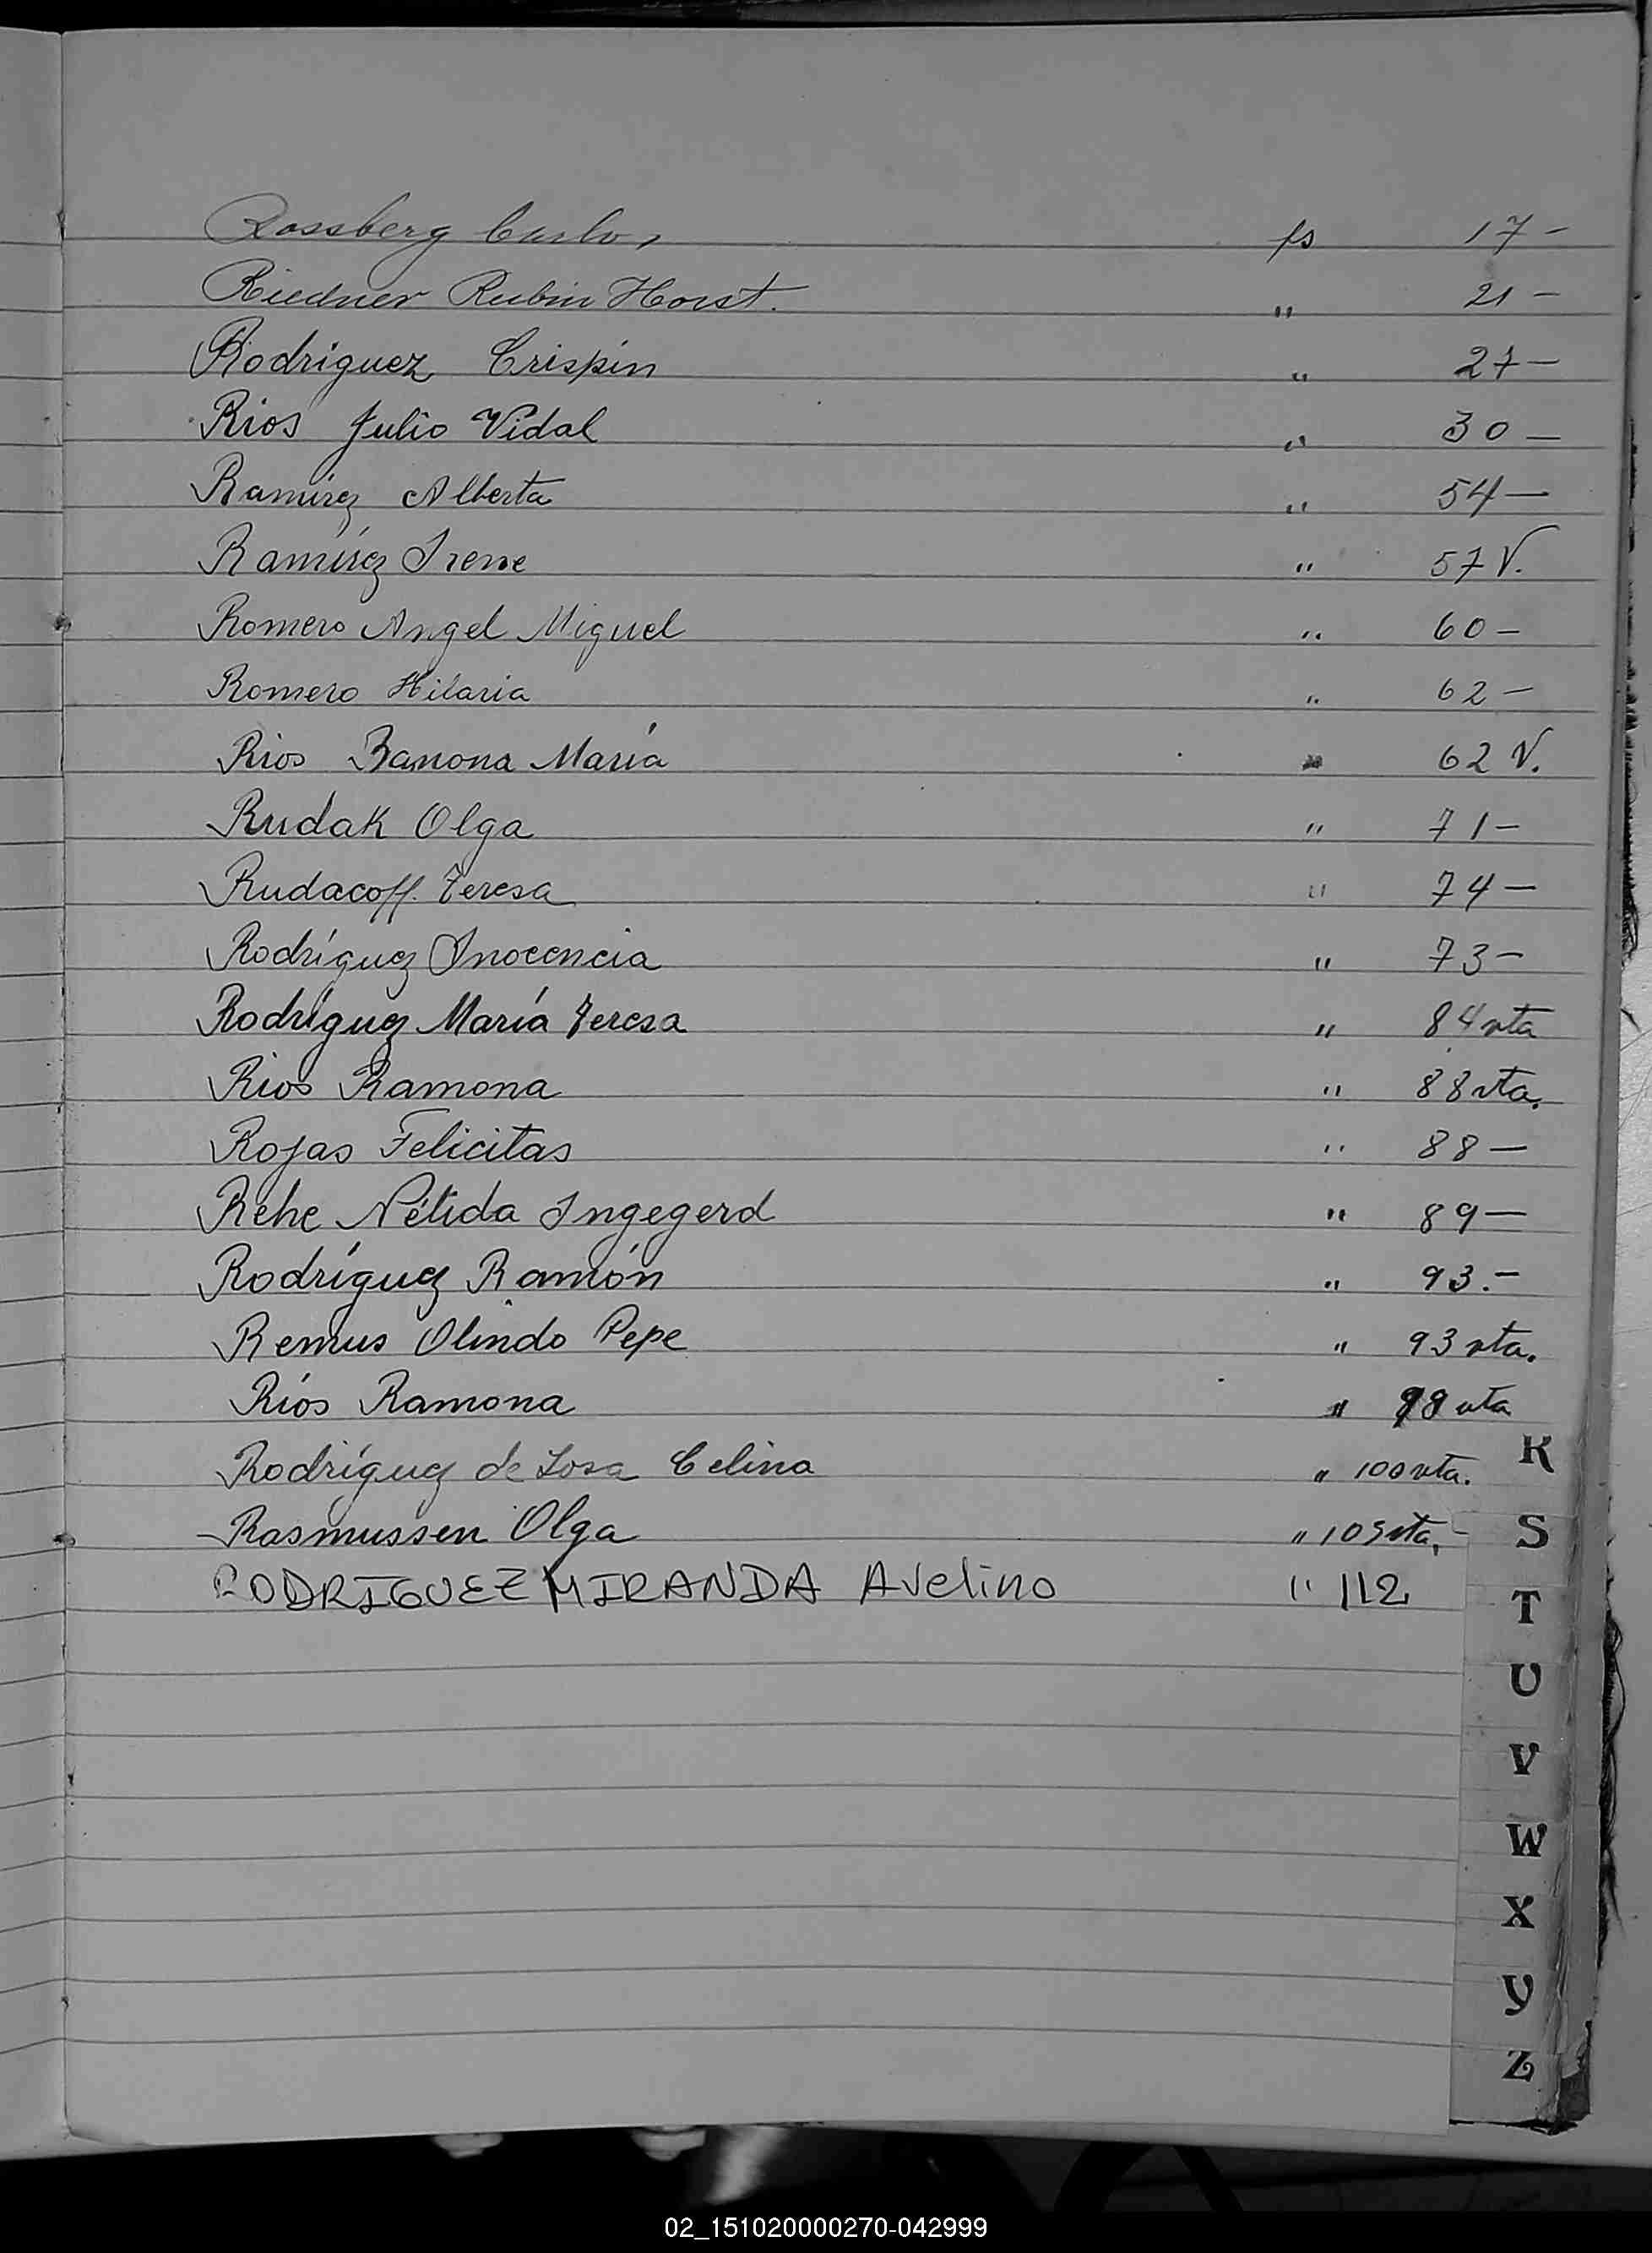 Rossberg Carlos fs 17 -
Riedner Rubin Horst. " 21 -
Rodriguez Crispin " 27 -
Rios Julio Vidal " 30 -
Ramírez Alberta " 54 -
Ramírez Irene " 57 V.
Romero Angel Miguel " 60 -
Romero Hilaria " 62 -
Rios Ramona María " 62 V.
Rudak Olga " 71 -
Rudacoff. Teresa " 74 -
Rodríguez Inocencia " 73 -
Rodríguez María Teresa " 84 vta
Rios Ramona " 88 vta.
Rojas Felicitas " 88 -
Rehe Nélida Ingegerd " 89 -
Rodríguez Ramón " 93.-
Remus Olindo Pepe " 93 vta.
Ríos Ramona " vta
Rodríguez de Sosa Celina " 100 vta.
Rasmussen Olga " 105 vta.-
RODRIGUEZ MIRANDA Avelino " 112
R
S
T
U
V
W
X
Y
Z
02_151020000270-042999